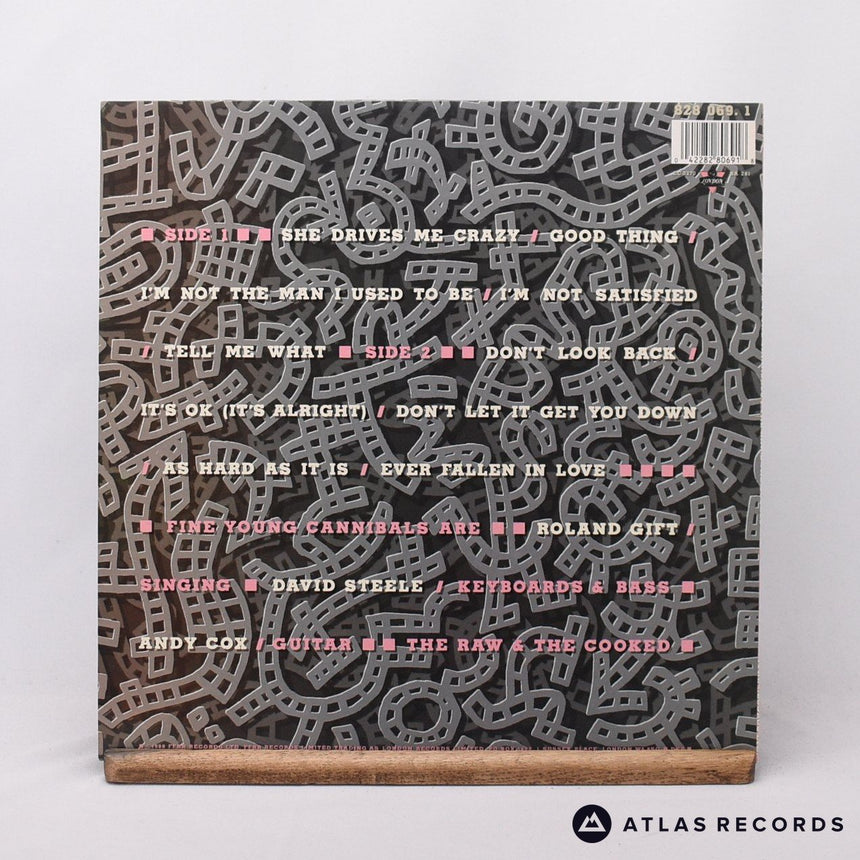 828 069. 1
0 42282 80691 8
LONDON
■ SIDE 1 ■ ■ SHE DRIVES ME CRAZY / GOOD THING /
I'M NOT THE MAN I USED TO BE / I'M NOT SATISFIED
/ TELL ME WHAT ■ SIDE 2 ■ ■ DON'T LOOK BACK /
IT'S OK (IT'S ALRIGHT) / DON'T LET IT GET YOU DOWN
/ AS HARD AS IT IS / EVER FALLEN IN LOVE ■ ■ ■ ■
■ FINE YOUNG CANNIBALS ARE ■ ■ ROLAND GIFT /
SINGING ■ DAVID STEELE / KEYBOARDS & BASS ■
ANDY COX / GUITAR ■ ■ THE RAW & THE COOKED ■
RECORDS LIMITED TRADING AS LONDON RECORDS
ATLAS RECORDS